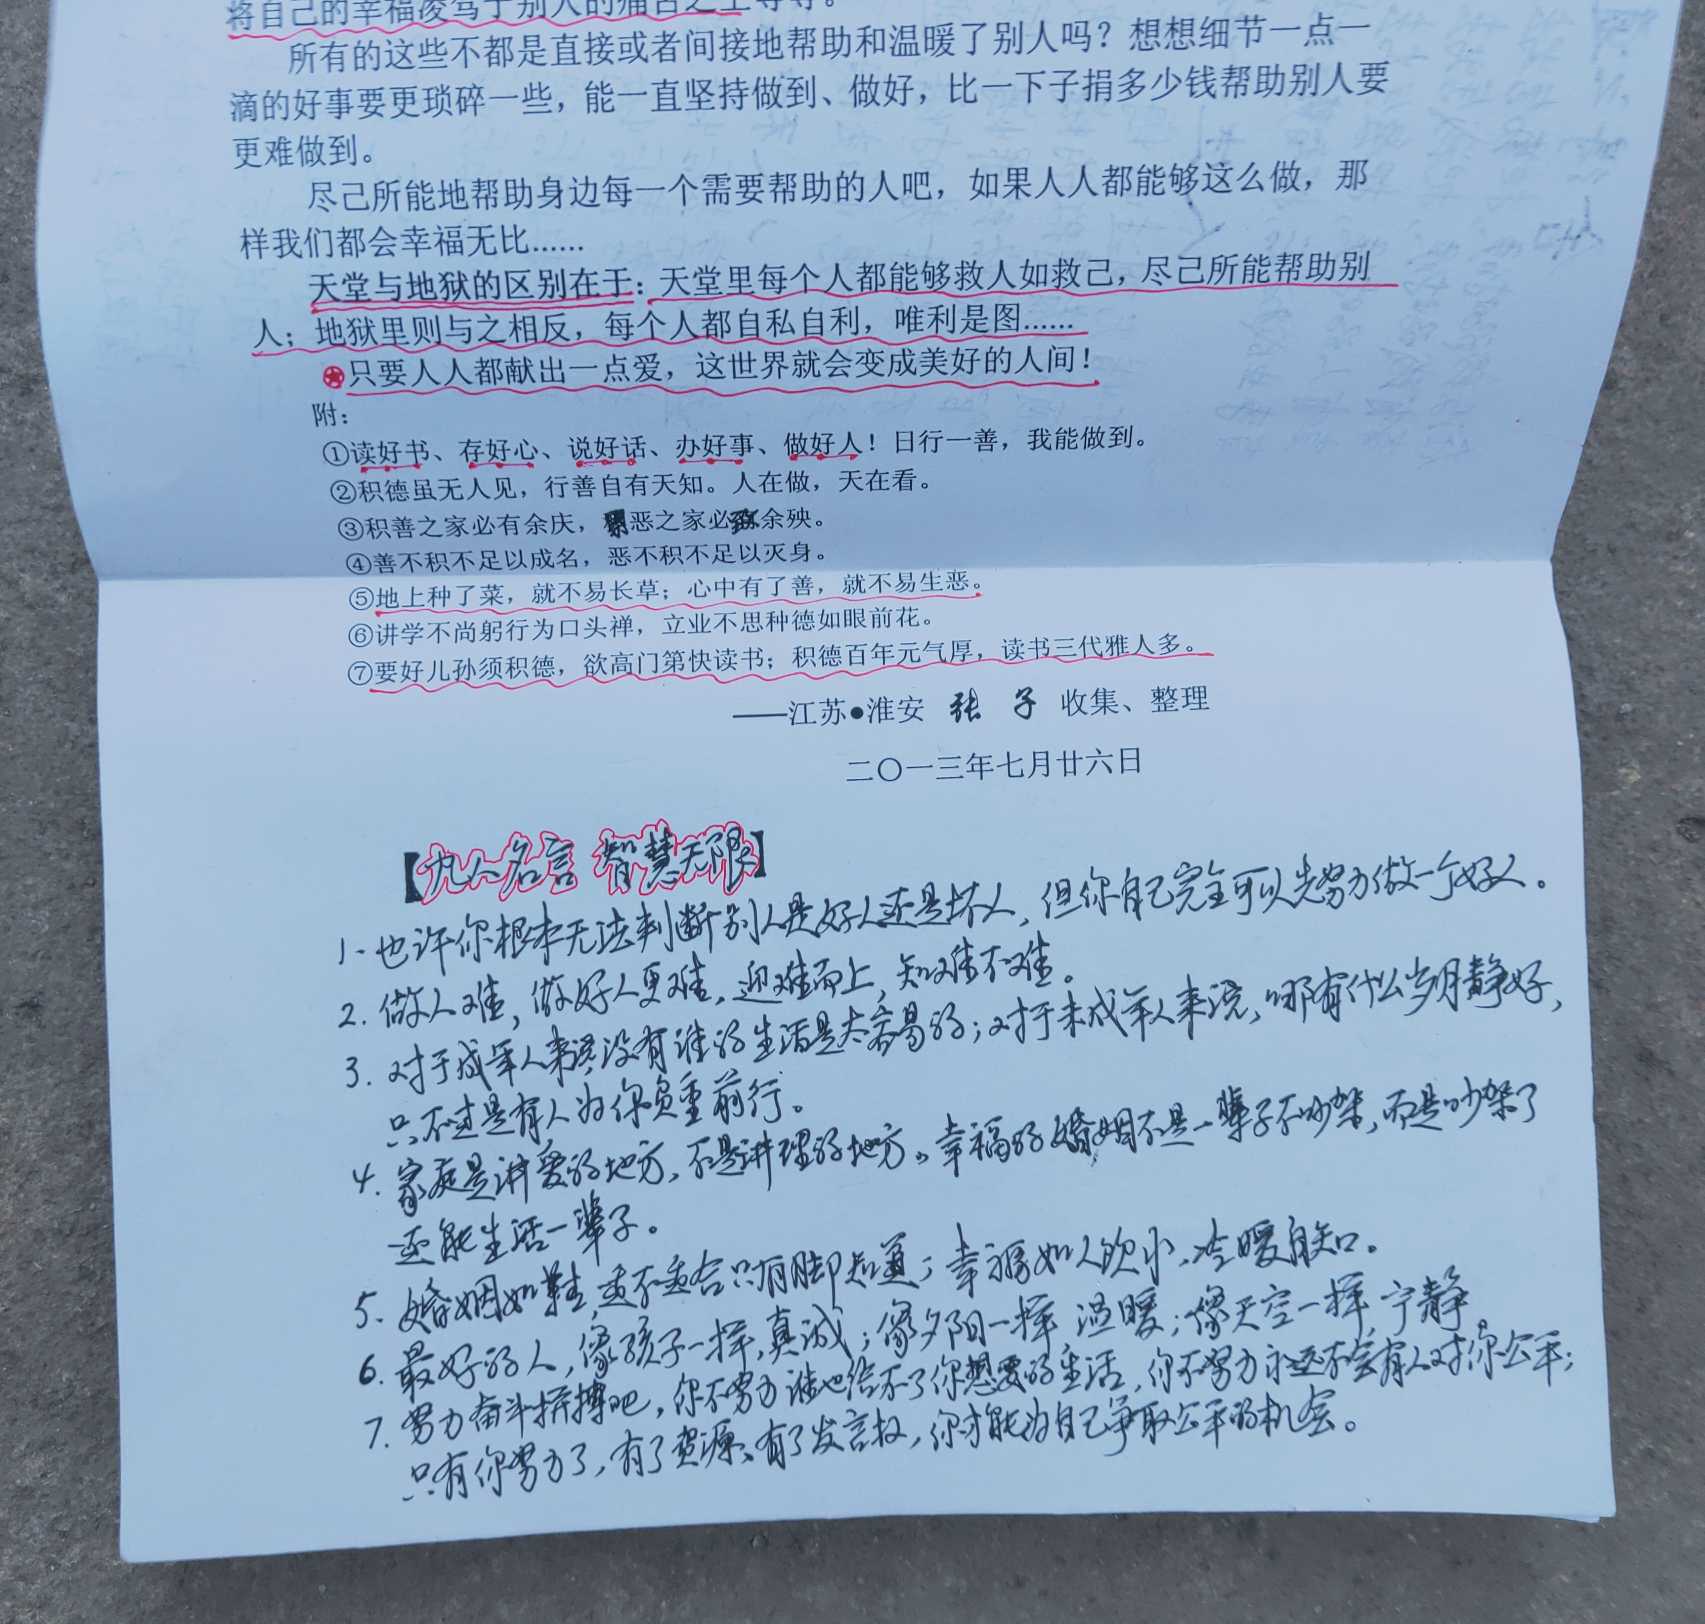 将自己的幸福凌驾于别人的痛苦之上等等。
所有的这些不都是直接或者间接地帮助和温暖了别人吗？想想细节一点一
滴的好事要更琐碎一些，能一直坚持做到、做好，比一下子捐多少钱帮助别人要
更难做到。
尽己所能地帮助身边每一个需要帮助的人吧，如果人人都能够这么做，那
样我们都会幸福无比……
天堂与地狱的区别在于：天堂里每个人都能够救人如救己，尽己所能帮助别
人；地狱里则与之相反，每个人都自私自利，唯利是图……
只要人人都献出一点爱，这世界就会变成美好的人间！
附：
①读好书、存好心、说好话、办好事、做好人！日行一善，我能做到。
②积德虽无人见，行善自有天知。人在做，天在看。
③积善之家必有余庆，累恶之家必致余殃。
④善不积不足以成名，恶不积不足以灭身。
⑤地上种了菜，就不易长草；心中有了善，就不易生恶。
⑥讲学不尚躬行为口头禅，立业不思种德如眼前花。
⑦要好儿孙须积德，欲高门第快读书；积德百年元气厚，读书三代雅人多。
——江苏●淮安 张 子 收集、整理
二〇一三年七月廿六日
【凡人名言 智慧无限】
1. 也许你根本无法判断别人是好人还是坏人，但你自己完全可以先努力做一个好人。
2. 做人难，做好人更难，迎难而上，知难不难。
3. 对于成年人来讲没有谁的生活是太容易的；对于未成年人来说，哪有什么岁月静好，
只不过是有人为你负重前行。
4. 家庭是讲爱的地方，不是讲理的地方。幸福的婚姻不是一辈子不吵架，而是吵架了
还能生活一辈子。
5. 婚姻如鞋，适不适合只有脚知道；幸福如人饮水，冷暖自知。
6. 最好的人，像孩子一样，真诚；像夕阳一样，温暖；像天空一样，宁静。
7. 努力奋斗拼搏吧，你不努力谁也给不了你想要的生活，你不努力永远不会有人对你公平；
只有你努力了，有了资源、有了发言权，你才能为自己争取公平的机会。